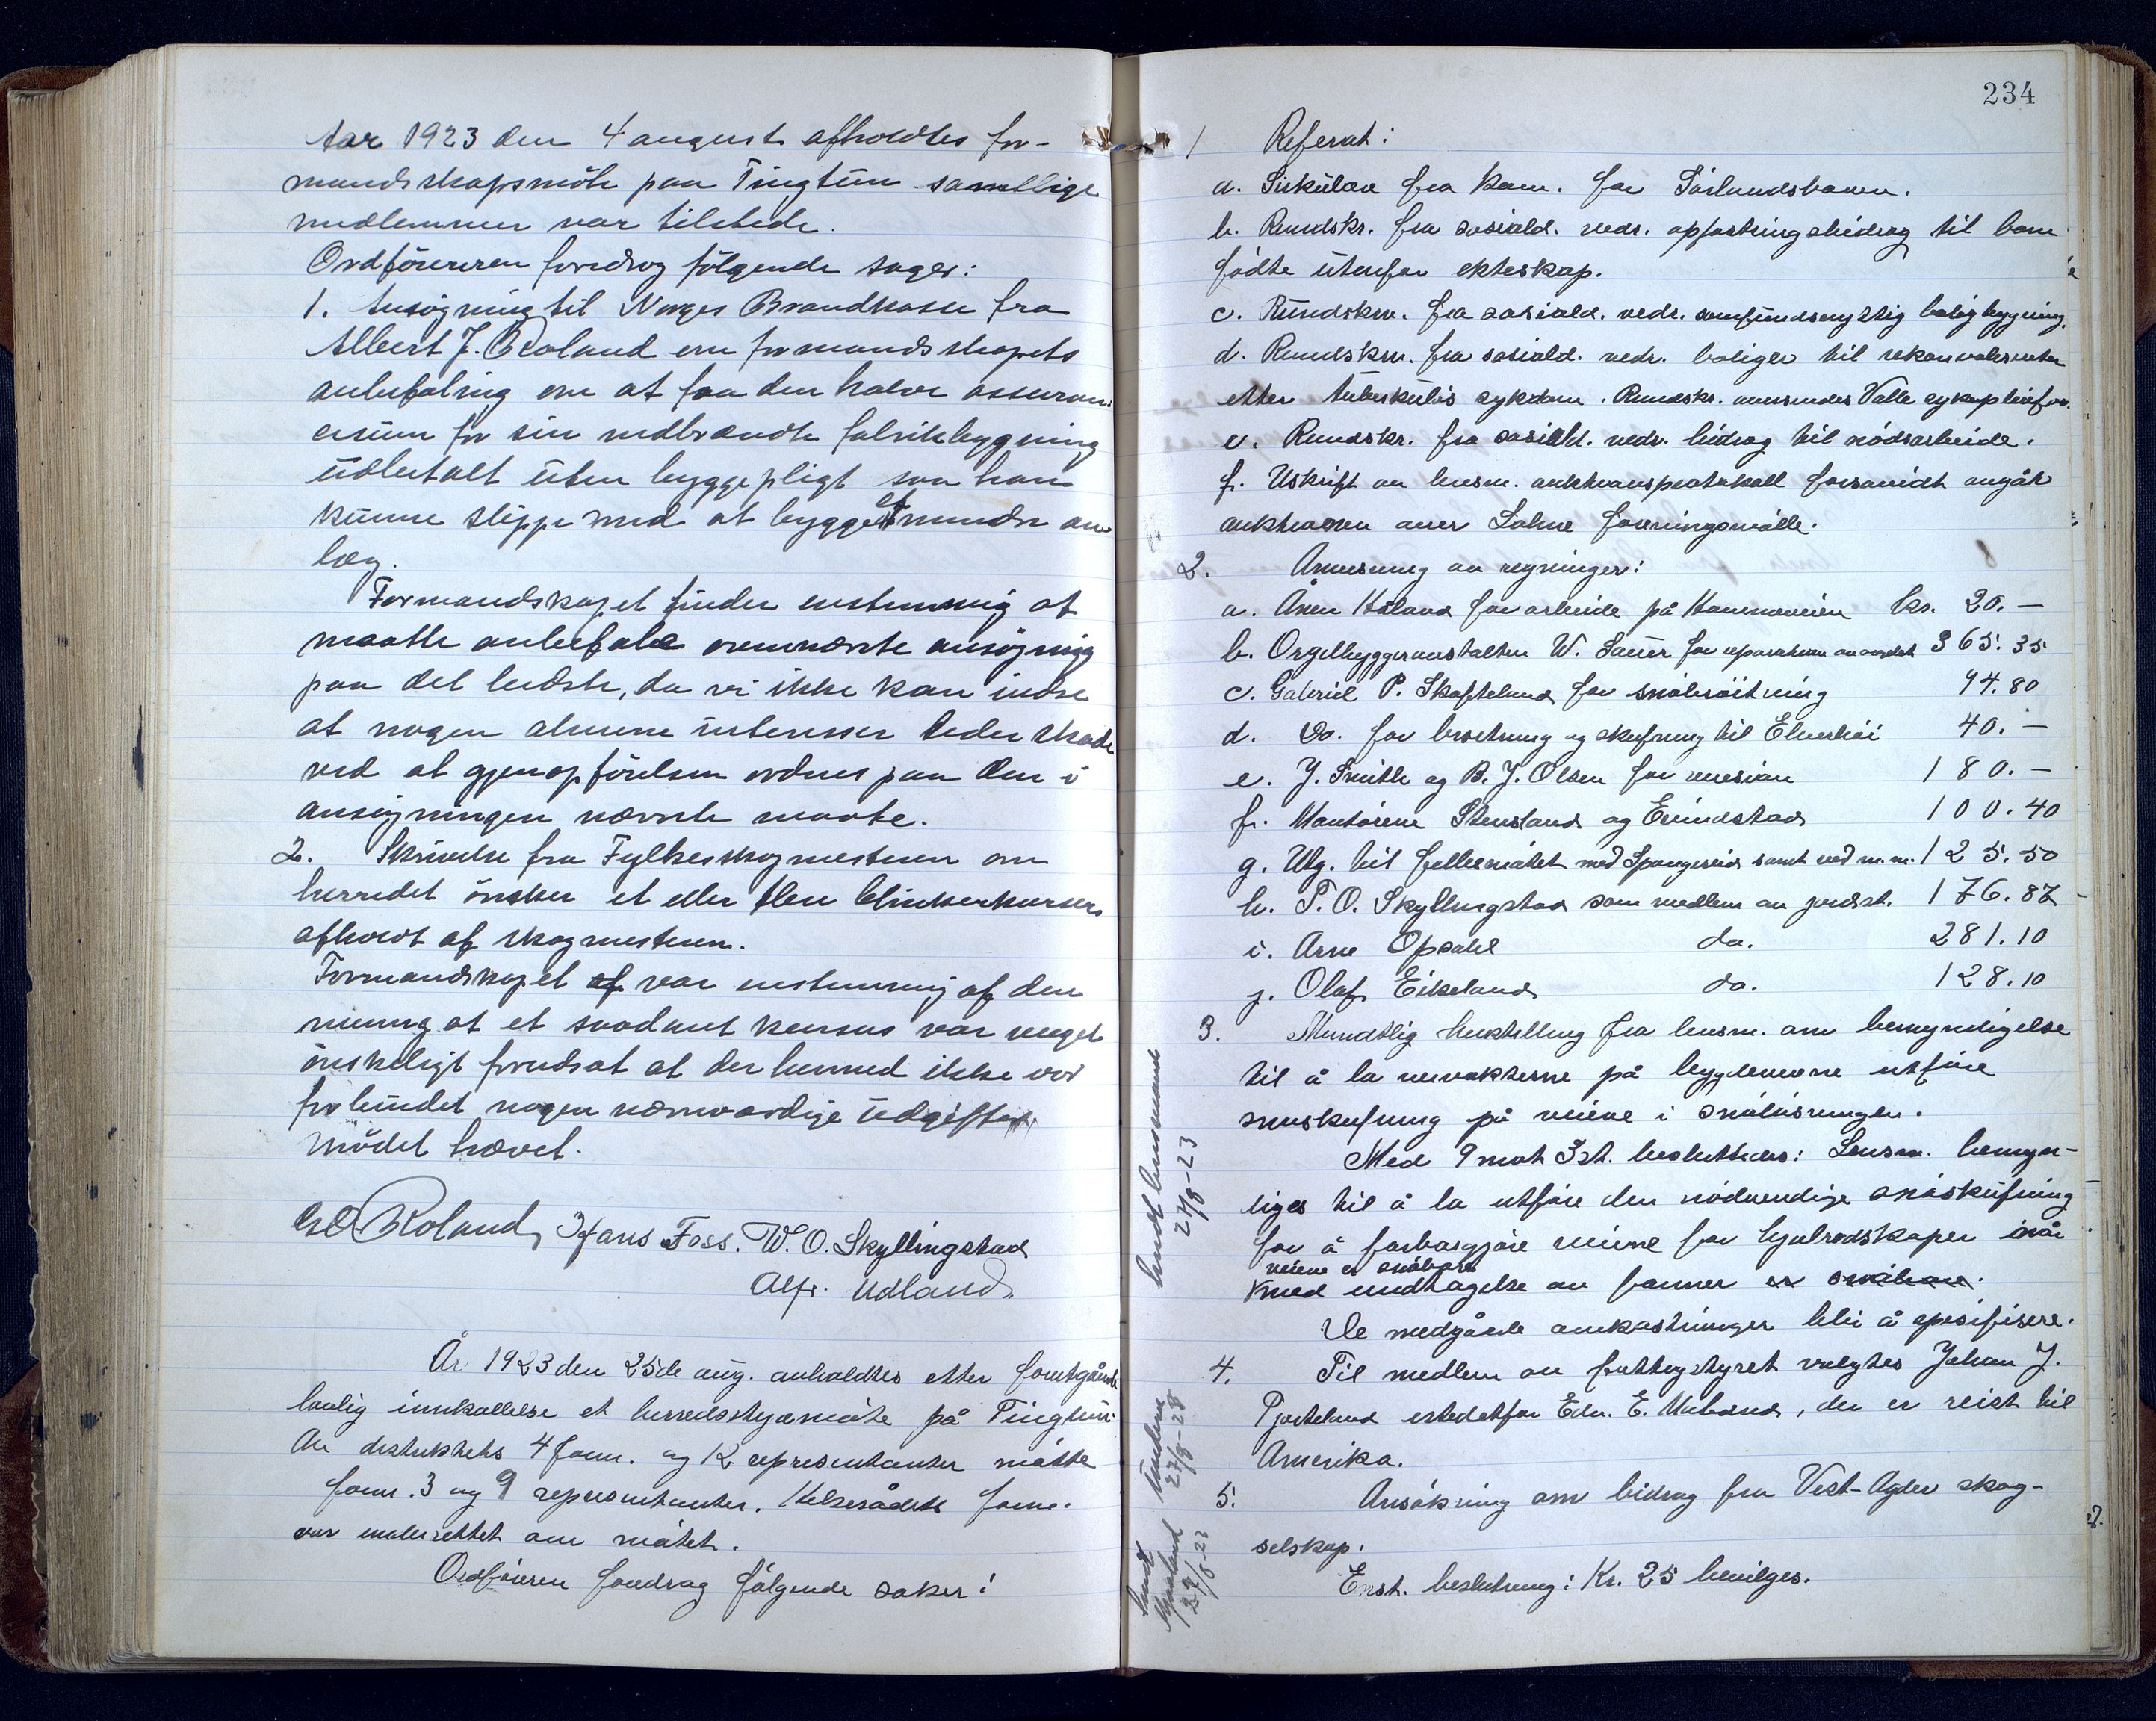 Aar 1923 den 4 august afholdtes for-
mandskapsmöte paa Tingtun samtlige
medlemmer var tilstede.
Ordföreren foredrog fölgende sager:
1. Ansögning til Norges Brandkasse fra
Albert J. Roland om formandskapets
anbefaling om at faa den halve assuran-
cesum for sin nedbrændte fabrikbygning
udbetalt uten byggepligt saa han
kunne slippe med at bygge et mindre an
læg.
Formandskapet finder enstemmig at
maatte anbefale ovennævnte ansögning
paa det bedste, da vi ikke kan indse
at nogen almene interesser lider skade
ved at gjenopförelsen ordnes paa den i
ansögningen nævnte maate.
2. Skrivelse fra Fylkesskogmesteren om
herredet önsker et eller flere blinkerkurser
afholdt af skogmesteren.
Formandskapet af var enstemmig af den
mening at et saadant kursus var meget
önskeligt forudsat at der hermed ikke var
forbundet nogen nævneværdige udgifter
Mödet hævet.
Roland, Hans Foss. W. O. Skyllingstad
Alfr. Udland.
År 1923 den 25de aug. avholdtes etter forutgående
lovlig innkallelse et herredsstyremöte på Tingtun.
Av distriktets 4 form. og 12 representanter mötte
form. 3 og 9 representanter. Helserådets form.
var underrettet om mötet.
Ordföreren foredrog fölgende saker:
234
1 Referat:
a. Sirkulære fra kom. for Sörlandsbanen.
b. Rundskr. fra sosiald. vedr. opfostringsbidrag til barn
födte utenfor ekteskap.
c. Rundskr. fra sosiald. vedr. samfundsnyttig boligbygning.
d. Rundskr. fra sosiald. vedr. boliger til rekonvalesenter
etter tuberkulös sykdom. Rundskr. oversendes Valle sykepleiefor.
e. Rundskr. fra sosiald. vedr. bidrag til nödsarbeide.
f. Utskrift av lensm. protokoll forsåvidt angår
over
2. Anvisning av regninger:
a. for arbeide på kr. 20.—
b. Orgelbyggeranstalten W. Sauer for reparation av orgelet 365.35
c. Gabriel P. Skofteland for snöbröitning 94.80
d. Do. for brötning og skufning til 40.—
e. J. Smith og B. J. Olsen for revision 180.—
f. Montörene Stensland og Grundstad 100.40
g. Utg. til fellesmötet med Spangereid samt ved m.m. 125.50
h. T. O. Skyllingstad som medlem av jordst. 176.87
i. Arne Opsahl do. 281.10
j. Olaf Eikeland do. 128.10
3. Mundtlig henstilling fra lensm. om bemyndigelse
til å la veivokterne på bygdeveiene utföre
sneskufning på veiene i snölösningen.
Med 9 mot 3 st. besluttedes: Lensm. bemyn-
diges til å la utföre den nödvendige snöskufning
for å farbargjöre veiene for hjulredskaper når
veiene er snöbare
med undtagelse av fonner er snöbare.
De medgåede omkostninger blir å spesifisere.
4. Til medlem av fattigstyret valgtes Johan J.
Tjosteland istedetfor Edv. E. Udland, der er reist til
Amerika.
5. Ansökning om bidrag fra Vest-Agder skog-
selskap.
Enst. beslutning: Kr. 25 bevilges.
sendt lensmannen
27/8-23
27/8-23
sendt
27/8-23